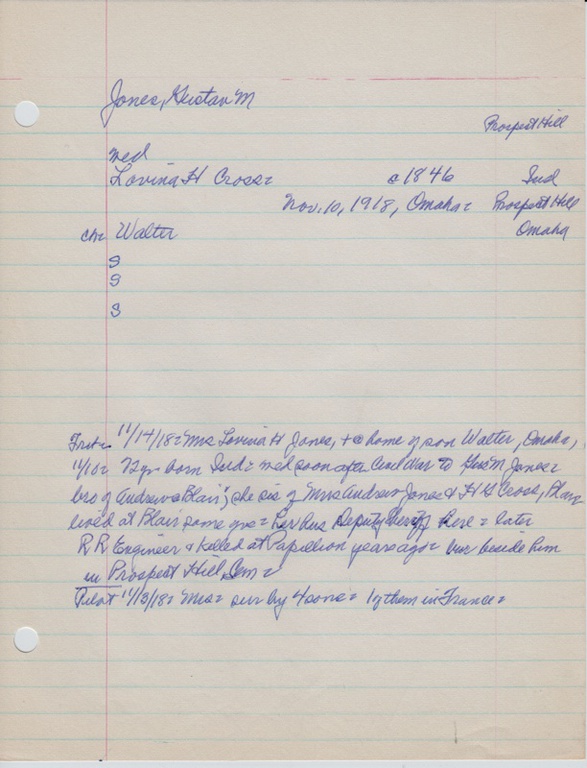 Jones, Gustav M
Prospect Hill
med
Lovina H Cross= c1846 Ind
Nov. 10, 1918, Omaha= Prospect Hill
Omaha
chr Walter
S
S
S
Trib= 11/14/18= Mrs Lovina H Jones, + @ home of son Walter, Omaha,
11/10= 72yr born Ind= med soon after Civil War to Gus M Jones=
bro of Andrew @ Blair; she sis of Mrs Andrew Jones & H H Cross,
lived at Blair some yrs= her hus Deputy Sheriff here= later
R R Engineer & killed at Papillion years ago= bur beside him
in Prospect Hill Cem=
Pilot 11/13/18= Mrs= sur by 4 sons= 1 of them in France=